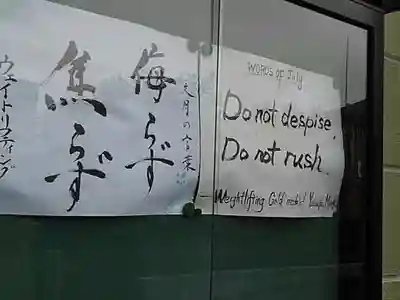 七月の言葉
侮らず
焦らず
ウエイトリフティング
WORDS OF July
Do not despise,
Do not rush.
Weightlifting Gold medal